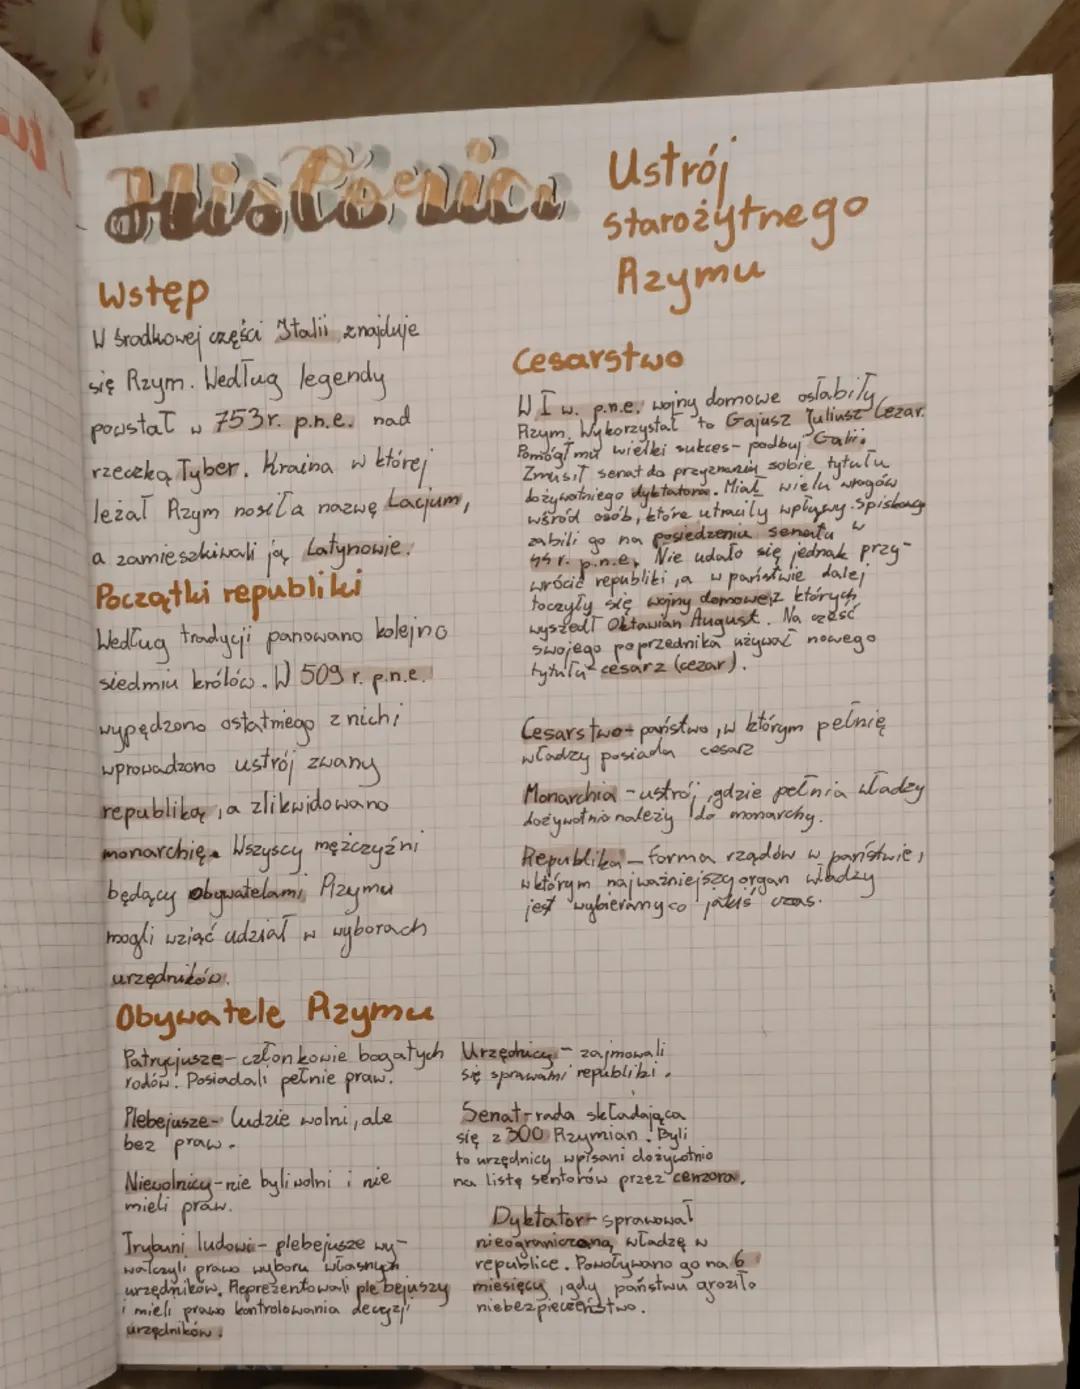 Historia
Ustrój
starożytnego
Rzymu
Wstęp
W środkowej części Italii znajduje
się Rzym. Według legendy
powstał w 753r. p.n.e. nad
rzeczką Tyber. Kraina w której
leżał Rzym nosiła nazwę Lacjum,
a zamieszkiwali ją Latynowie.
Początki republiki
Według tradycji panowano kolejno
siedmiu królów. W 509 r. p.n.e.
wypędzono ostatniego z nich i
wprowadzono ustrój zwany
republiką, a zlikwidowano
monarchię. Wszyscy mężczyźni
będący obywatelami Rzymu
mogli wziąć udział w wyborach
urzędników.
Cesarstwo
W I w. p.n.e. wojny domowe osłabiły
Rzym. Wykorzystał to Gajusz Juliusz Cezar.
Pomógł mu wielki sukces - podbuj Galii.
Zmusił senat do przyznania sobie tytułu
dożywotniego dyktatora. Miał wielu wrogów
wśród osób, które utraciły wpływy. Spiskowcy
zabili go na posiedzeniu senatu w
44 r. p.n.e. Nie udało się jednak przy-
wrócić republiki, a w państwie dalej
toczyły się wojny domowe, z których
wyszedł Oktawian August. Na cześć
swojego poprzednika używał nowego
tytułu - cesarz (cezar).
Cesarstwo - państwo, w którym pełnię
władzy posiada cesarz
Monarchia - ustrój, gdzie pełnia władzy
dożywotnio należy do monarchy.
Republika - forma rządów w państwie,
w którym najważniejszy organ władzy
jest wybierany co jakiś czas.
Obywatele Rzymu
Patrycjusze - członkowie bogatych
rodów. Posiadali pełnie praw.
Plebejusze - ludzie wolni, ale
bez praw.
Niewolnicy - nie byli wolni i nie
mieli praw.
Trybuni ludowi - plebejusze wy-
walczyli prawo wyboru własnych
urzędników. Reprezentowali plebejuszy
i mieli prawo kontrolowania decyzji
urzędników.
Urzędnicy - zajmowali
się sprawami republiki.
Senat - rada składająca
się z 300 Rzymian. Byli
to urzędnicy wpisani dożywotnio
na listę sentorów przez cenzora.
Dyktator - sprawował
nieograniczoną władzę w
republice. Powoływano go na 6
miesięcy, gdy państwu groziło
niebezpieczeństwo.